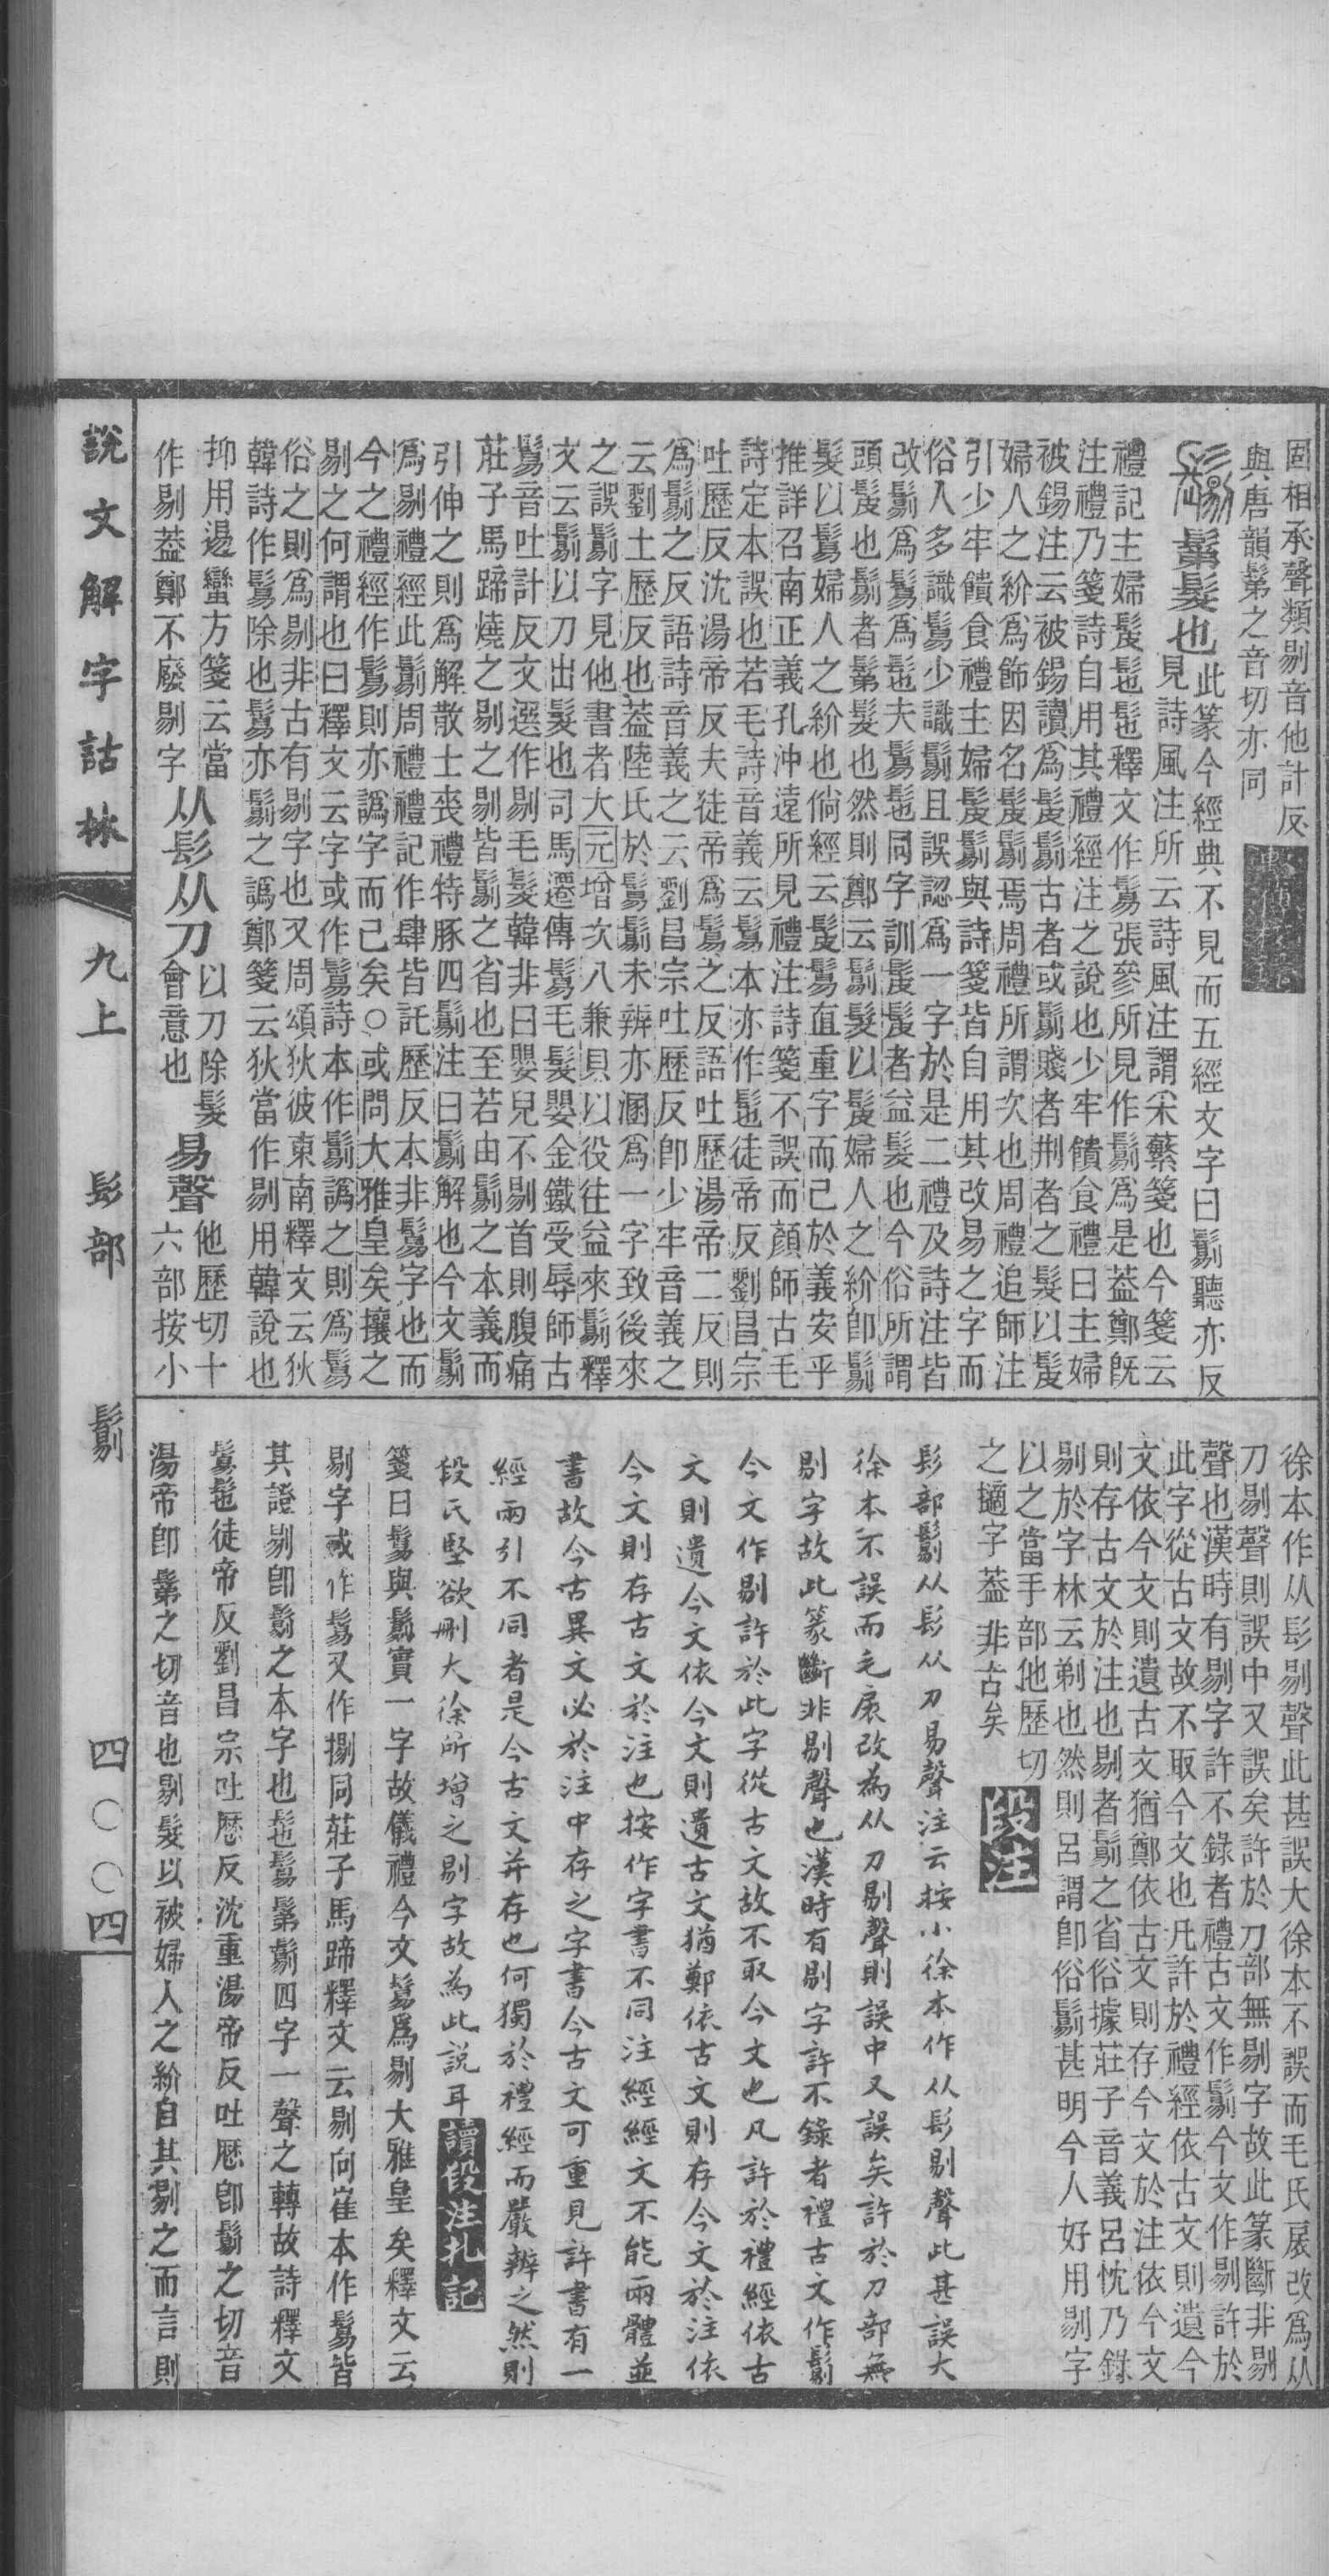 固相承聲類剔音他計反
與唐韻鬀之音切亦同
鬄 鬀髮也此篆今經典不見而五經文字曰鬄聽亦反
見詩風注所云詩風注謂采蘩箋也今箋云
禮記主婦髲髢髢釋文作鬄張參所見作鬄爲是葢鄭旣
注禮乃箋詩自用其禮經注之說也少牢饋食禮曰主婦
被錫注云被錫讀爲髲鬄古者或鬄賤者荆者之髮以髲
婦人之紒爲飾因名髲鬄焉周禮所謂次也周禮追師注
引少牢饋食禮主婦髲鬄與詩箋皆自用其改易之字而
俗人多識鬄少識鬄且誤認爲一字於是二禮及詩注皆
改鬄爲鬄爲髢夫鬄髢同字訓髲髲者益髮也今俗所謂
頭髲也鬄者鬀髮也然則鄭云鬄髮以髲婦人之紒卽鬄
髮以鬄婦人之紒也倘經云髲鬄直重字而已於義安乎
推詳召南正義孔沖遠所見禮注詩箋不誤而顏師古毛
詩定本誤也若毛詩音義云鬄本亦作髢徒帝反劉昌宗
吐歷反沈湯帝反夫徒帝爲鬄之反語吐歷湯帝二反則
爲鬄之反語詩音義之云劉昌宗吐歷反卽少牢音義之
云劉土歷反也葢陸氏於鬄鬄未辨亦溷爲一字致後來
之誤鬄字見他書者大元增次八兼貝以役往益來鬄釋
文云鬄以刀出髮也司馬遷傳鬄毛髮嬰金鐵受辱師古
鬄音吐計反文選作剔毛髮韓非曰嬰兒不剔首則腹痛
莊子馬蹄燒之剔之剔皆鬄之省也至若由鬄之本義而
引伸之則爲解散士喪禮特豚四鬄注曰鬄解也今文鬄
爲剔禮經此鬄周禮禮記作肆皆託歷反本非鬄字也而
今之禮經作鬄則亦譌字而已矣○或問大雅皇矣攘之
剔之何謂也曰釋文云字或作鬄詩本作鬄譌之則爲鬄
俗之則爲剔非古有剔字也又周頌狄彼東南釋文云狄
韓詩作鬄除也鬄亦鬄之譌鄭箋云狄當作剔用韓說也
抑用逷蠻方箋云當
作剔葢鄭不廢剔字从髟从刀以刀除髮
會意也易聲他歷切十
六部按小
徐本作从髟剔聲此甚誤大徐本不誤而毛氏扆改爲从
刀剔聲則誤中又誤矣許於刀部無剔字故此篆斷非剔
聲也漢時有剔字許不錄者禮古文作鬄今文作剔許於
此字從古文故不取今文也凡許於禮經依古文則遺今
文依今文則遺古文猶鄭依古文則存今文於注依今文
則存古文於注也剔者鬄之省俗據莊子音義呂忱乃錄
剔於字林云剃也然則呂謂卽俗鬄甚明今人好用剔字
以之當手部他歷切
之擿字葢非古矣段注
髟部鬄从髟从刀易聲注云按小徐本作从髟剔聲此甚誤大
徐本不誤而毛扆改為从刀剔聲則誤中又誤矣許於刀部無
剔字故此篆斷非剔聲也漢時有剔字許不錄者禮古文作鬄
今文作剔許於此字從古文故不取今文也凡許於禮經依古
文則遺今文依今文則遺古文猶鄭依古文則存今文於注依
今文則存古文於注也按作字書不同注經經文不能兩體並
書故今古異文必於注中存之字書今古文可重見許書有一
經兩引不同者是今古文并存也何獨於禮經而嚴辨之然則
段氏堅欲刪大徐所增之剔字故為此說耳讀段注札記
箋曰鬄與鬄實一字故儀禮今文鬄爲剔大雅皇矣釋文云
剔字或作鬄又作㨹同莊子馬蹄釋文云剔向崔本作鬄皆
其證剔卽鬄之本字也髢鬄鬀鬄四字一聲之轉故詩釋文
鬄髢徒帝反劉昌宗吐歷反沈重湯帝反吐歷卽鬄之切音
湯帝卽鬀之切音也剔髮以被婦人之紒自其剔之而言則
說文解字詁林 九上 髟部 鬄 四〇〇四